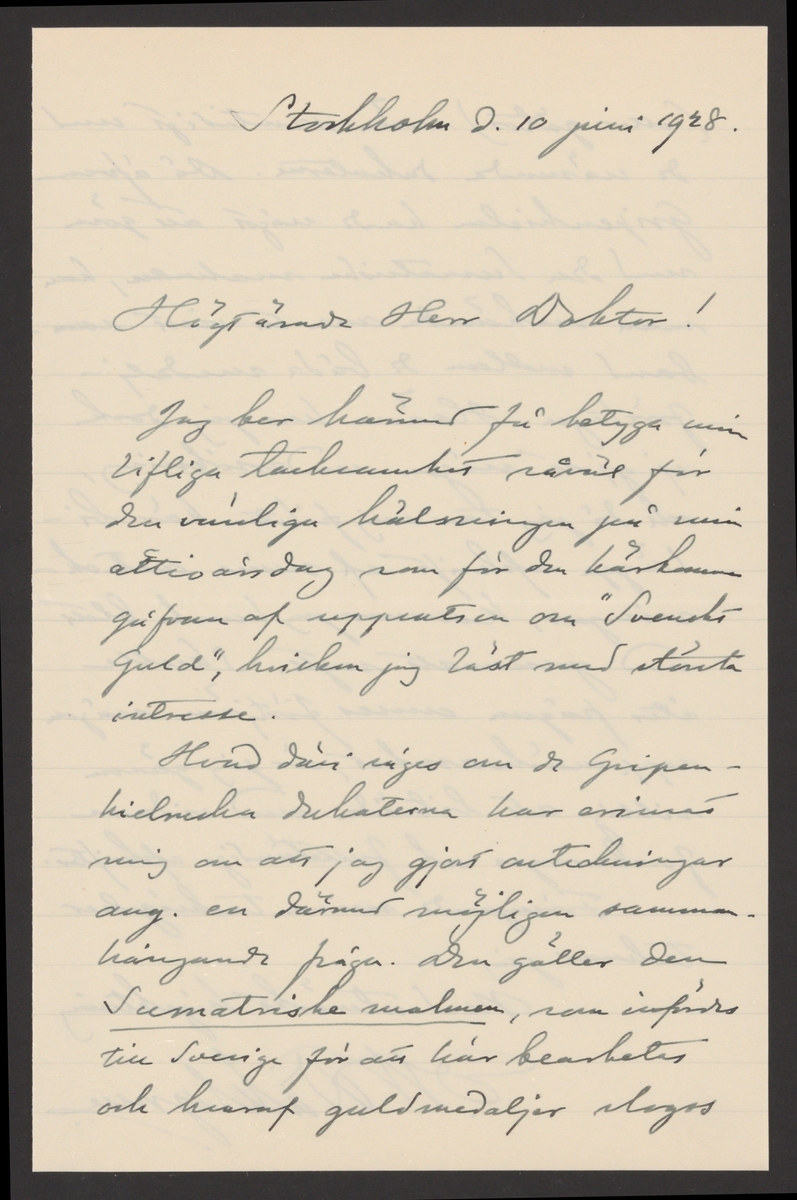 Stockholm d. 10 juni 1928.
Högtärade Herr Doktor!
Jag ber härmed få betyga min
lifliga tacksamhet såväl för
den vänliga hälsningen på min
åttioårsdag som för den härkomna
gåfvan af uppsatsen om "Svenskt
Guld", hvilken jag läst med största
intresse.
Hvad däri säges om de Gripen-
hielmska dukaterna har erinrat
mig om att jag gjort anteckningar
ang. en därmed möjligen samman-
hängande fråga. Den gäller den
Sumatriske malmen, som infördes
till Sverige för att här bearbetas
och hvaraf guldmedaljer slogos